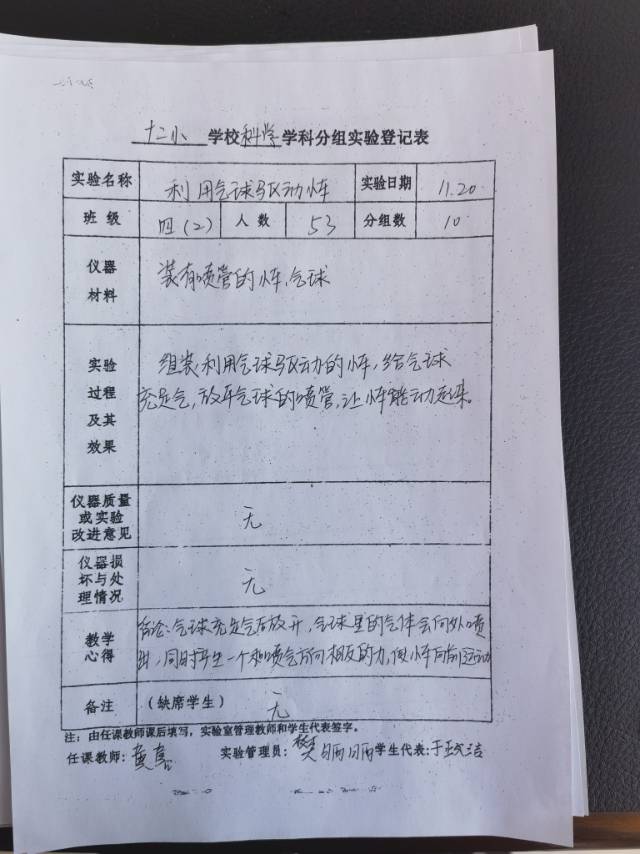 十二小 学校 科学 学科分组实验登记表
实验名称 利用气球驱动小车 实验日期 11.20
班级 四(2) 人数 53 分组数 10
仪器
材料
装有喷管的小车,气球
实验
过程
及其
效果
组装利用气球驱动的小车,给气球
充足气,放开气球的喷管,让小车能动起来。
仪器质量
或实验
改进意见
无
仪器损
坏与处
理情况
无
教学
心得
结论:气球充足气后放开,气球里的气体会向外喷
出,同时产生一个和喷气方向相反的力,使小车向前运动
备注 (缺席学生) 无
注:由任课教师课后填写,实验室管理教师和学生代表签字。
任课教师: 实验管理员:樊丽丽 学生代表:于